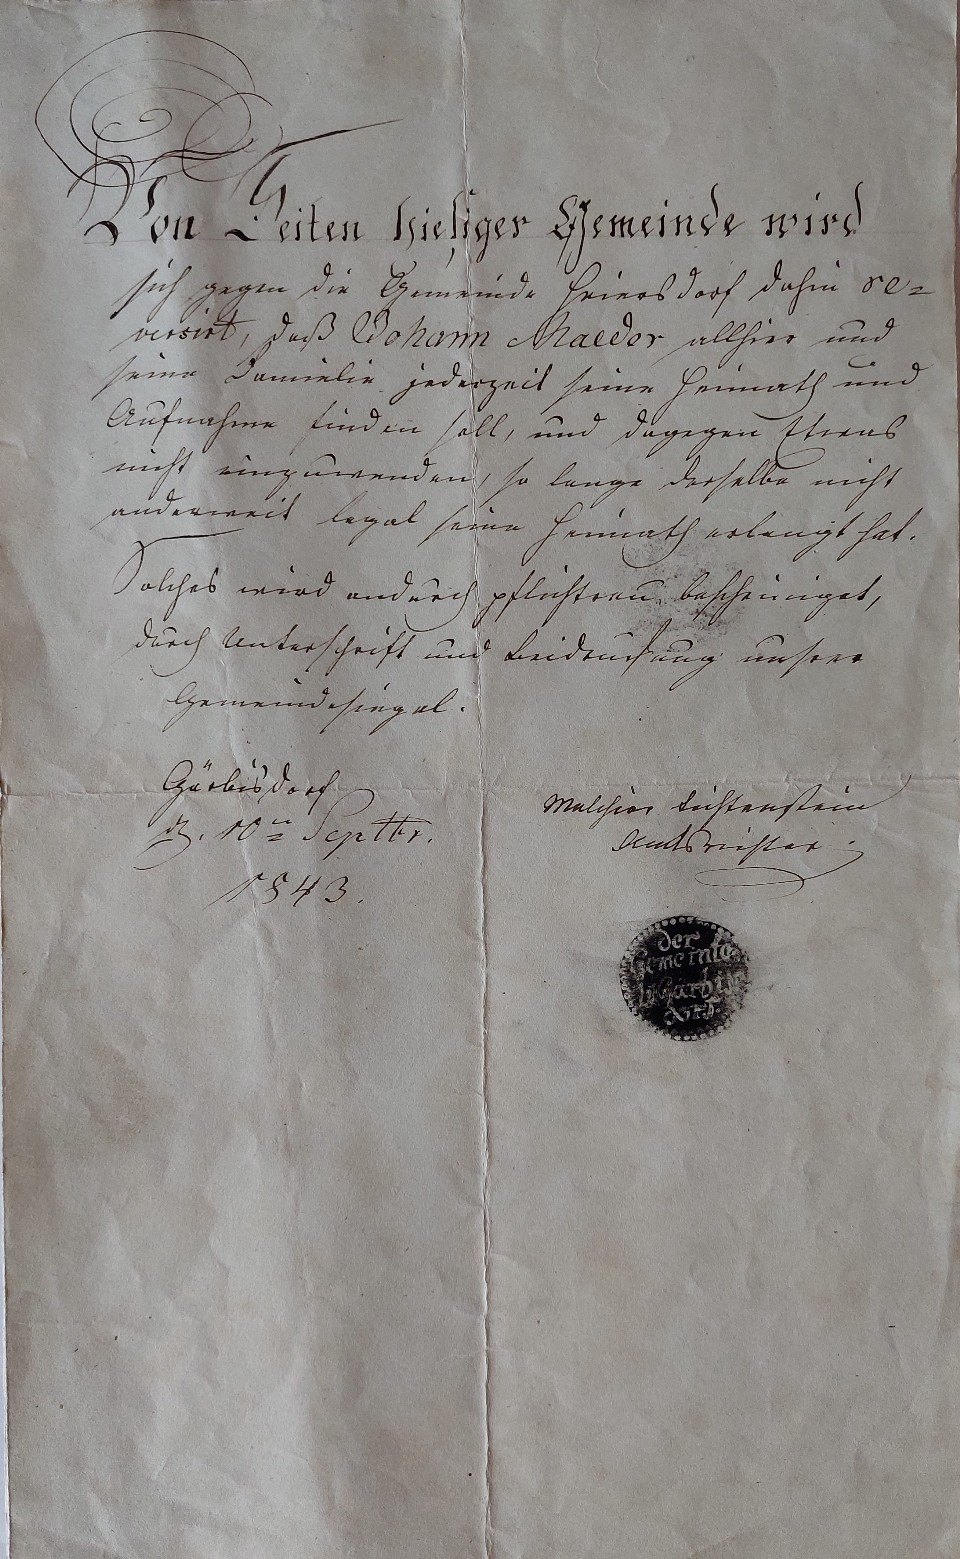 Von Seiten hiesiger Gemeinde wird
sich gegen die Gemeinde Heiersdorf dahin re=
versirt, daß Johann Maeder allhier und
seine Famielie jederzeit seine Heimath und
Aufnahme finden soll, und dagegen Etwas
nicht einzuwenden, so lange derselbe nicht
anderweit legal seine Heimath erlangt hat.
Solches wird andurch pflichtreu bescheiniget,
durch Unterschrift und Beidruckung unsrer
Gemeindesiegel.
Gärbisdorf
d. 10ten Septbr.
1843.
Melchior Lichtenstein
Amtsrichter.
der
Gemeinte
Gärbis
dorf